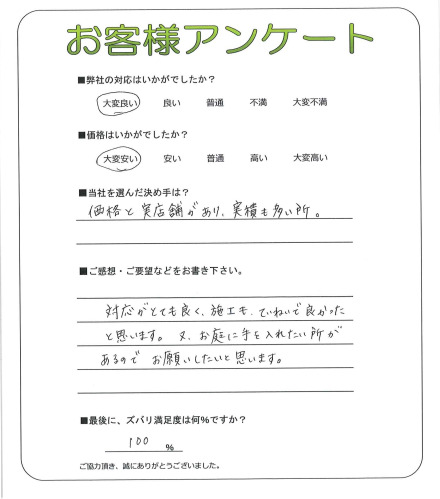 お客様アンケート
■弊社の対応はいかがでしたか？
大変良い 良い 普通 不満 大変不満
■価格はいかがでしたか？
大変安い 安い 普通 高い 大変高い
■当社を選んだ決め手は？
価格と実店舗があり、実績も多い所。
■ご感想・ご要望などをお書き下さい。
対応がとても良く、施工も、ていねいで良かった
と思います。又、お庭に手を入れたい所が
あるので お願いしたいと思います。
■最後に、ズバリ満足度は何%ですか？
100 %
ご協力頂き、誠にありがとうございました。